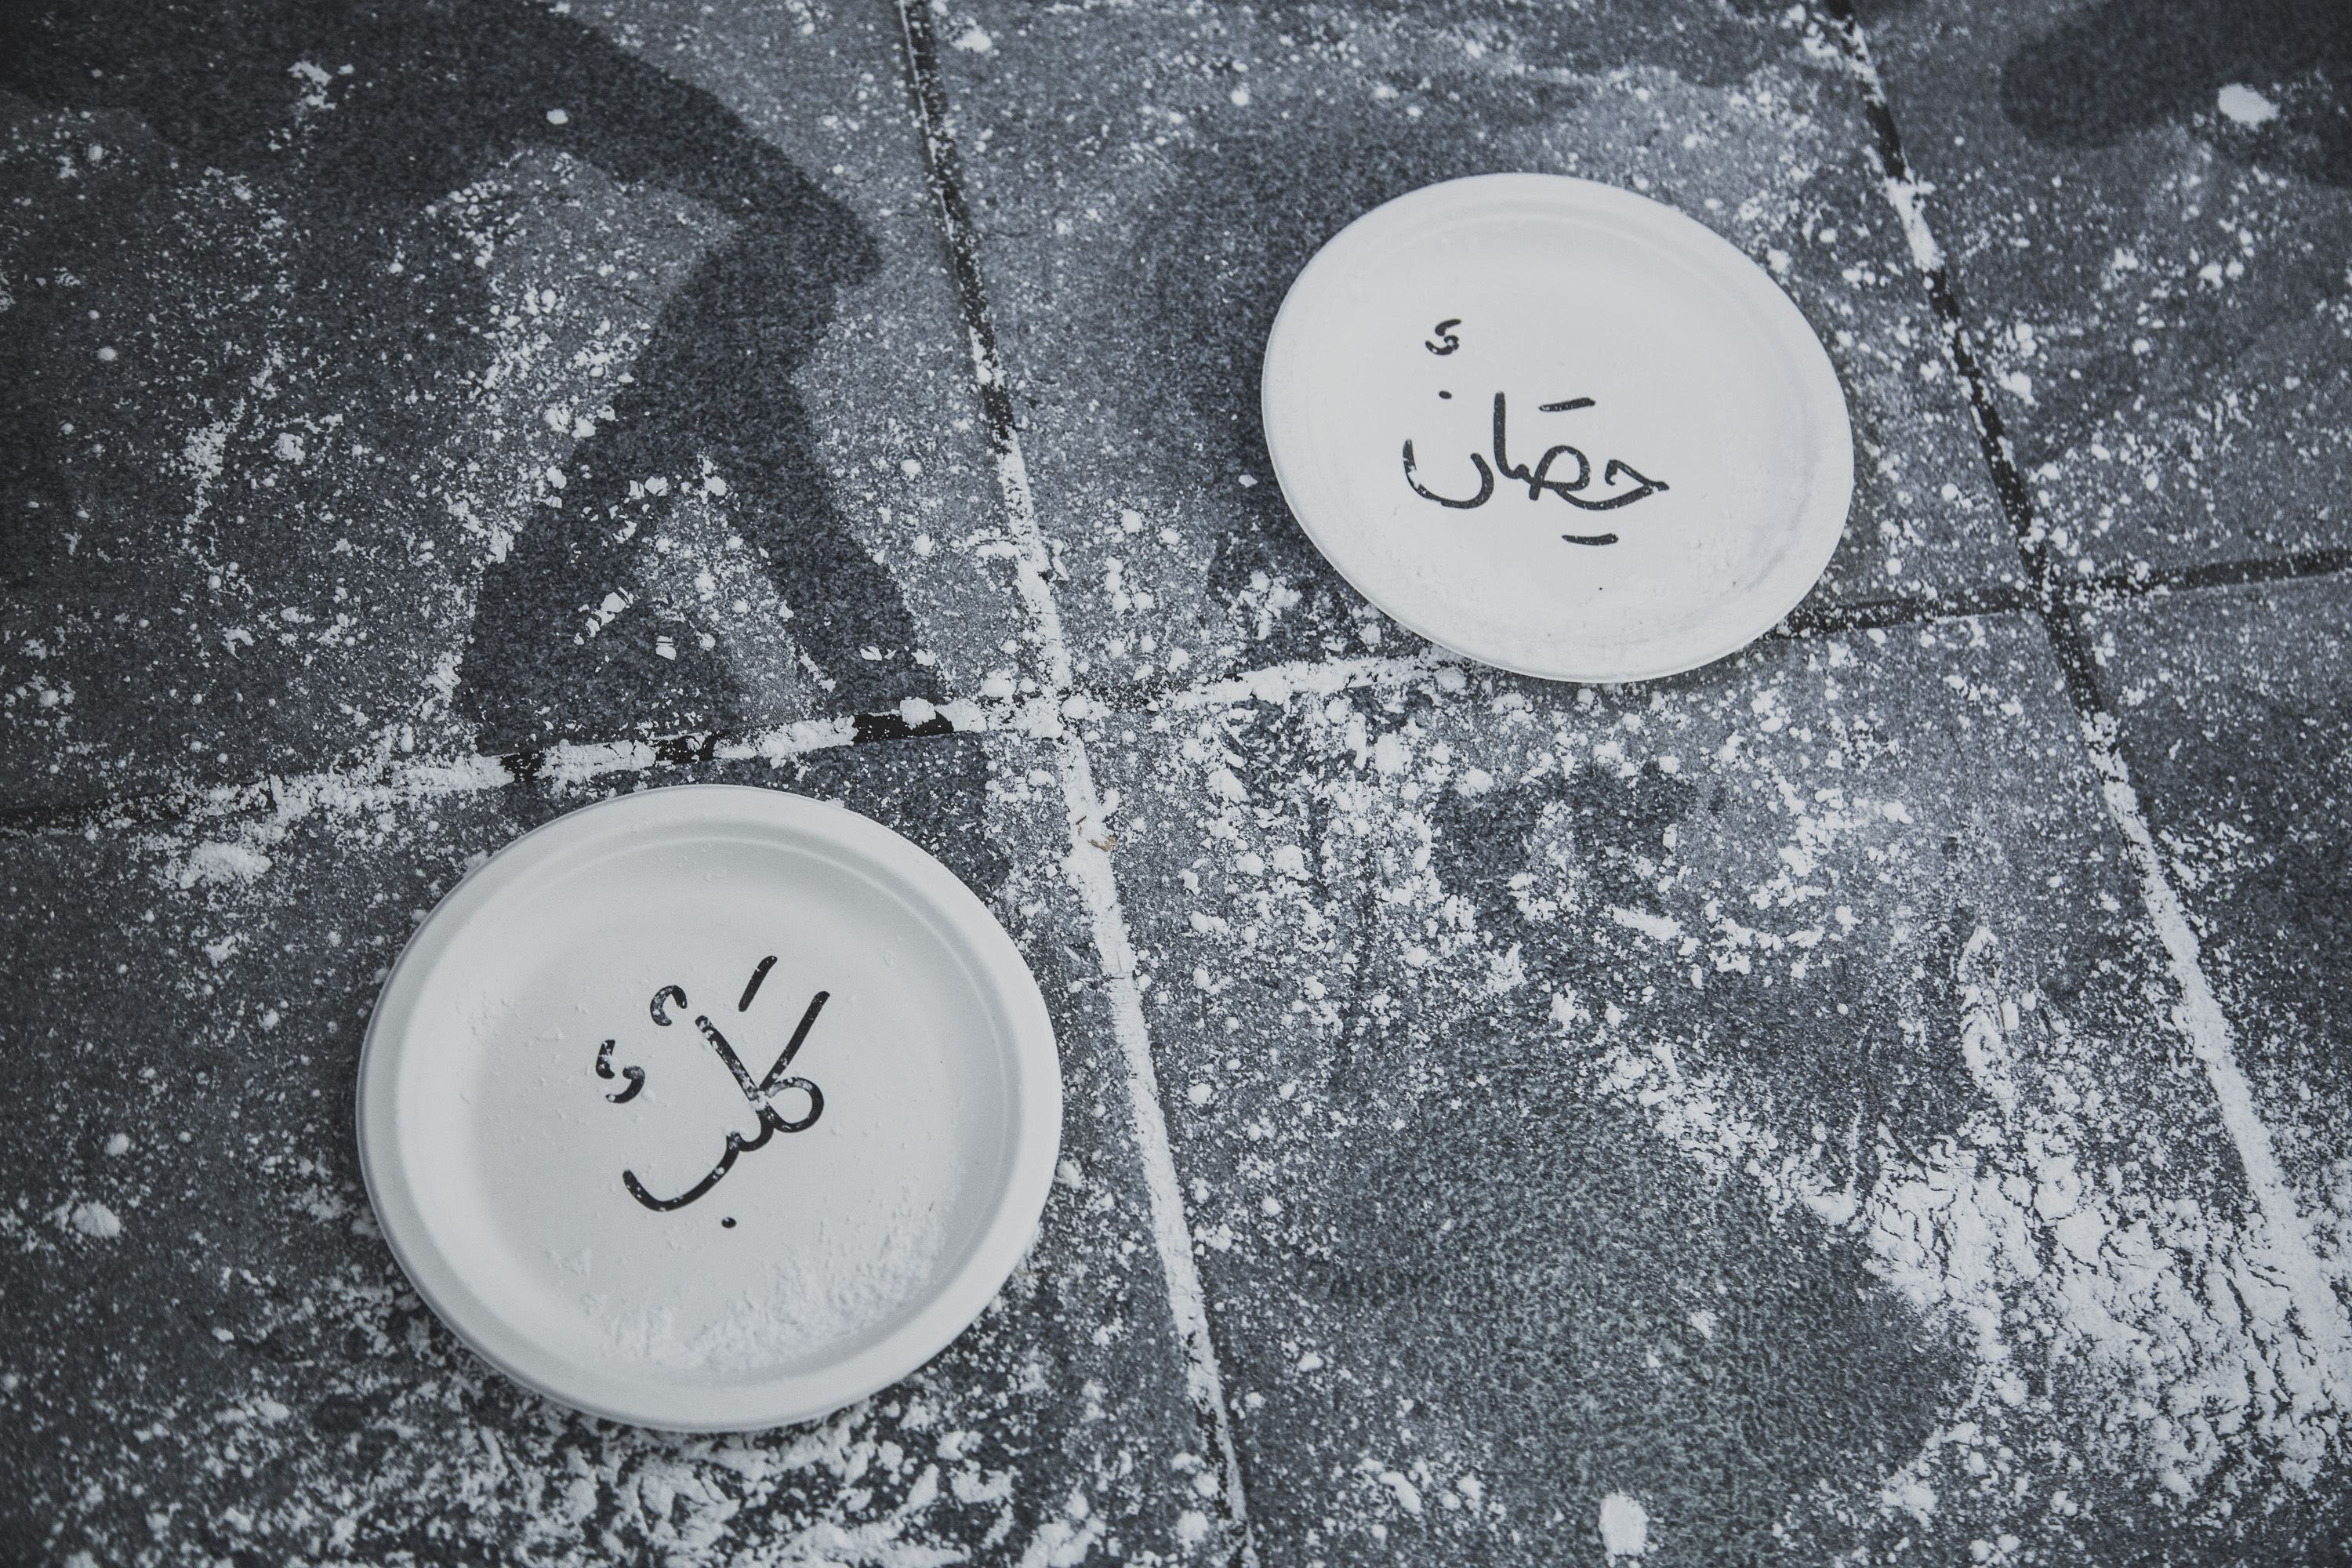 حِصَانٌ
كَلْبٌ